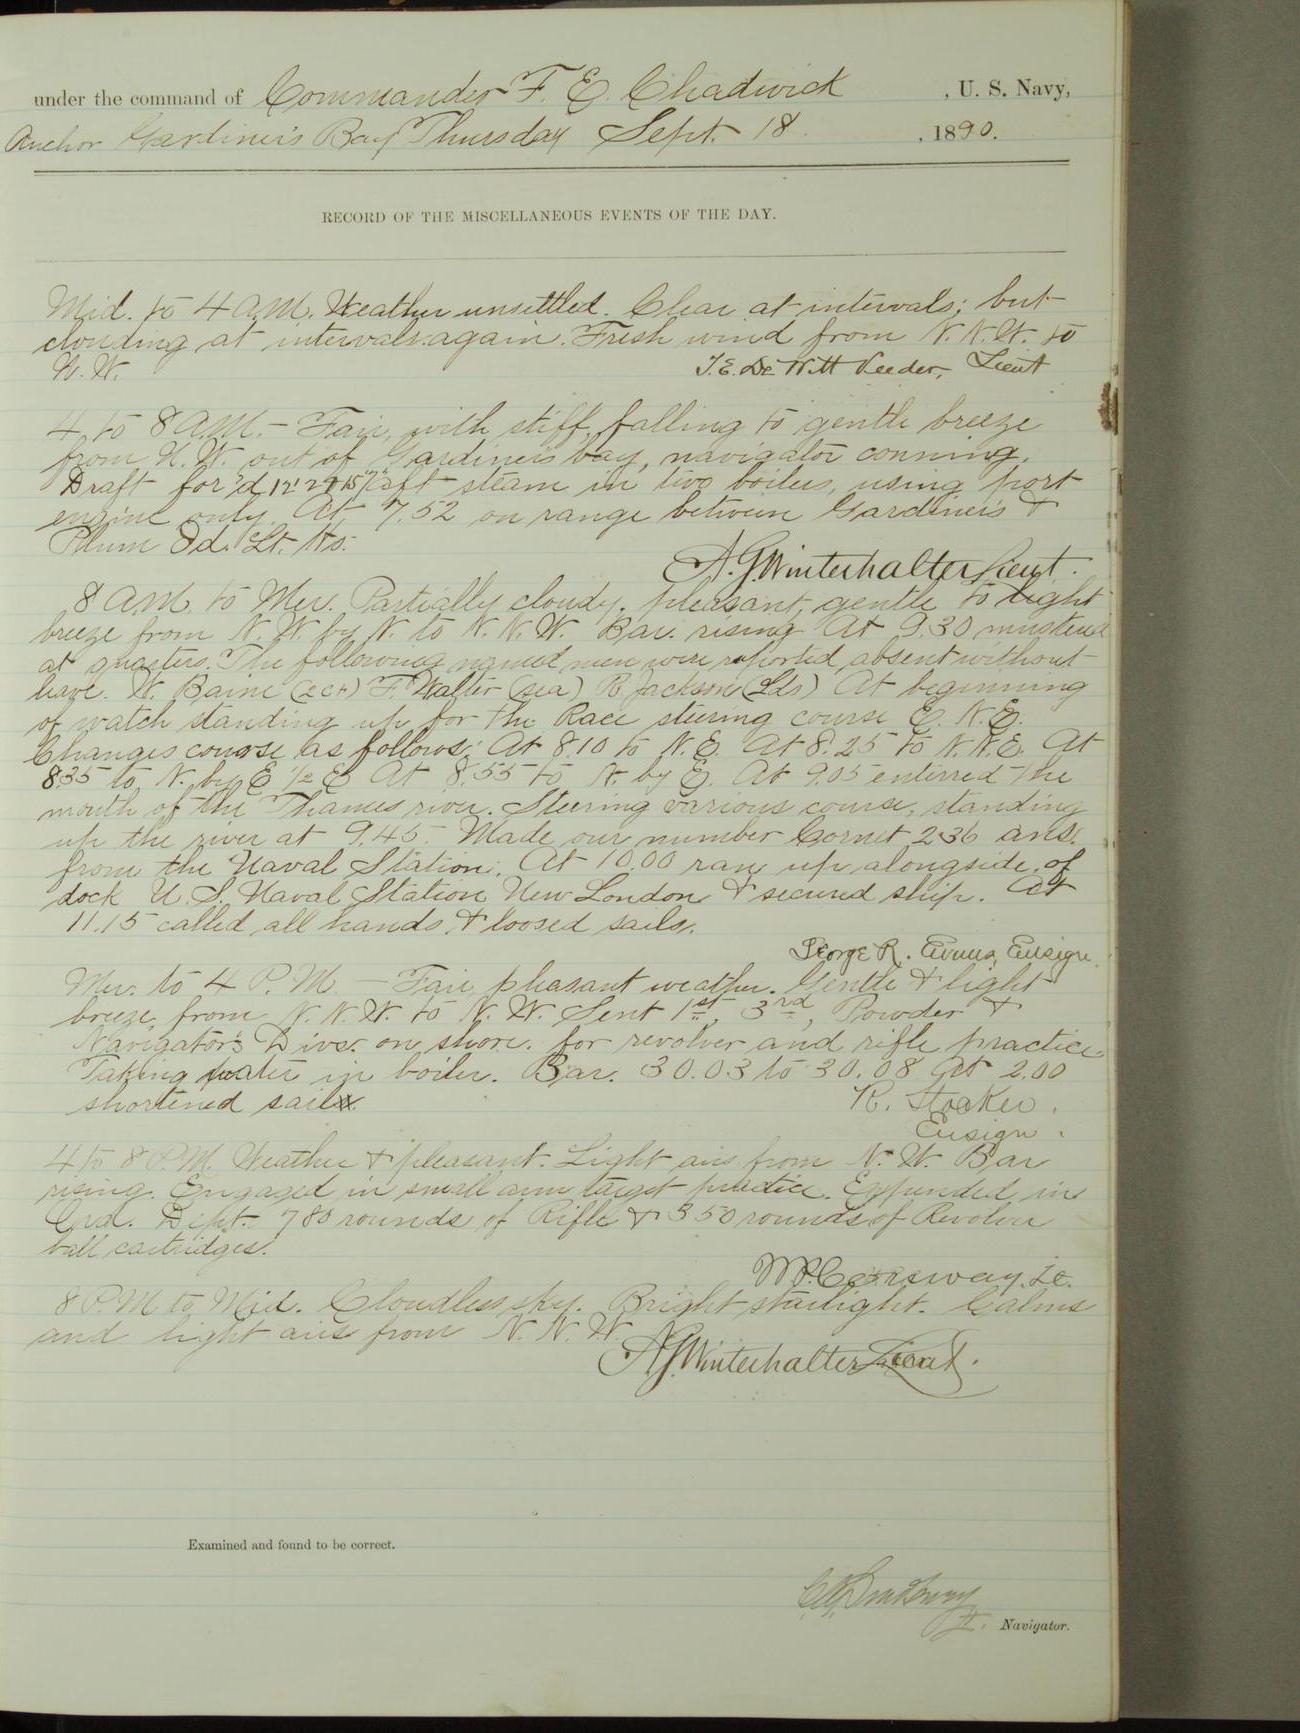 under the command of Commander F. E. Chadwick , U. S. Navy,
Anchor Gardiner's Bay Thursday Sept. 18 , 1890.
RECORD OF THE MISCELLANEOUS EVENTS OF THE DAY.
Mid. to 4 A.M. Weather unsettled. Clear at intervals; but
clouding at intervals again. Fresh wind from N.N.W. to
N.W. T.E. De Witt Veeder, Lieut
4 to 8 A.M. – Fair, with stiff, falling to gentle breeze
from N.W. out of Gardiner's bay, navigator conning.
Draft for'd 12' 2" aft steam in two boilers, using port
engine only. At 7.52 on range between Gardiner's &
Plum Id. Lt. Ho.
A.G. Winterhalter Lieut.
8 A.M. to Mer. Partially cloudy, pleasant, gentle to light
breeze from N.W. by N. to N.N.W. Bar. rising At 9.30 mustered
at quarters. The following named men were reported absent without
leave. W. Baine F. Walter (sea) R. Jackson (Lds) At beginning
of watch standing up for the Race steering course E.N.E.
Changes course as follows: At 8.10 to N.E. At 8.25 to N.N.E. At
8.35 to N. by E ½ E At 8.55 to N. by E. At 9.05 entered the
mouth of the Thames river. Steering various course, standing
up the river at 9.45. Made our number Cornet 236 ans.
from the Naval Station. At 10.00 ran up alongside of
dock U.S. Naval Station New London & secured ship. At
11.15 called all hands & loosed sails.
George R. Evans, Ensign.
Mer. to 4 P.M. – Fair pleasant weather. Gentle & light
breeze from N.N.W. to N.W. Sent 1st, 3rd, Powder &
Navigator's Divs. on shore for revolver and rifle practice.
Taking water in boiler. Bar. 30.03 to 30.08 At 2.00
shortened sail. R. Stocker.
Ensign.
4 to 8 P.M. Weather & pleasant. Light airs from N.W. Bar
rising. Engaged in small arm target practice. Expended in
Ord. Dept. 780 rounds of Rifle & 350 rounds of Revolver
ball cartridges.
W.P. Conway, Lt.
8 P.M to Mid. Cloudless sky. Bright starlight. Calms
and light airs from N.N.W.
A.G. Winterhalter Lieut.
Examined and found to be correct.
Navigator.